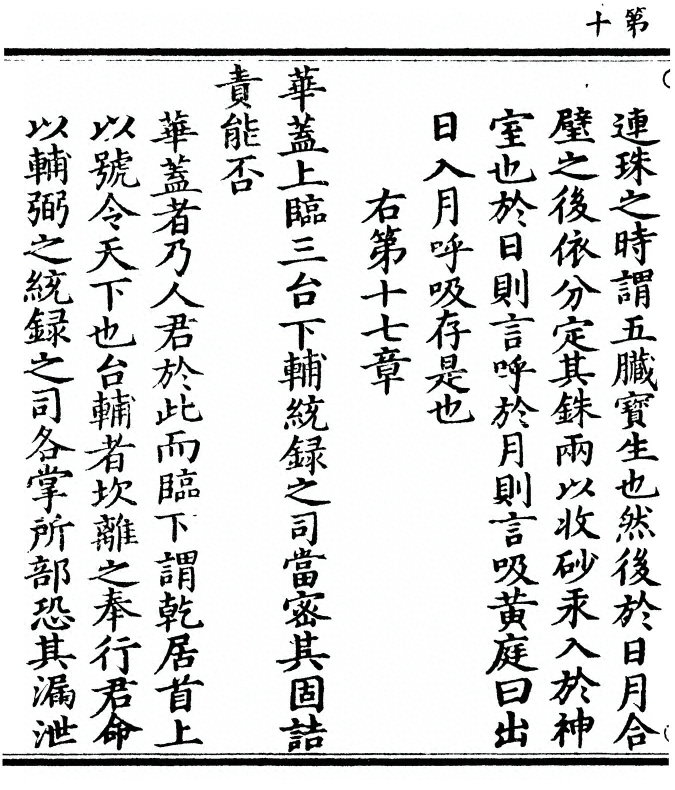 第十
連珠之時謂五臟寶生也然後於日月合
璧之後依分定其銖兩以收砂汞入於神
室也於日則言呼於月則言吸黄庭曰出
日入月呼吸存是也
右第十七章
華蓋上臨三台下輔統録之司當密其固詰
責能否
華蓋者乃人君於此而臨下謂乾居首上
以號令天下也台輔者坎離之奉行君命
以輔弼之統録之司各掌所部恐其漏泄